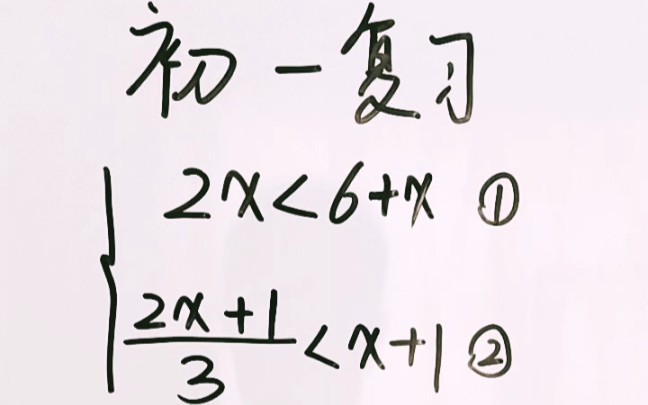 初一复习
2x<6+x ①
(2x+1)/3<x+1 ②